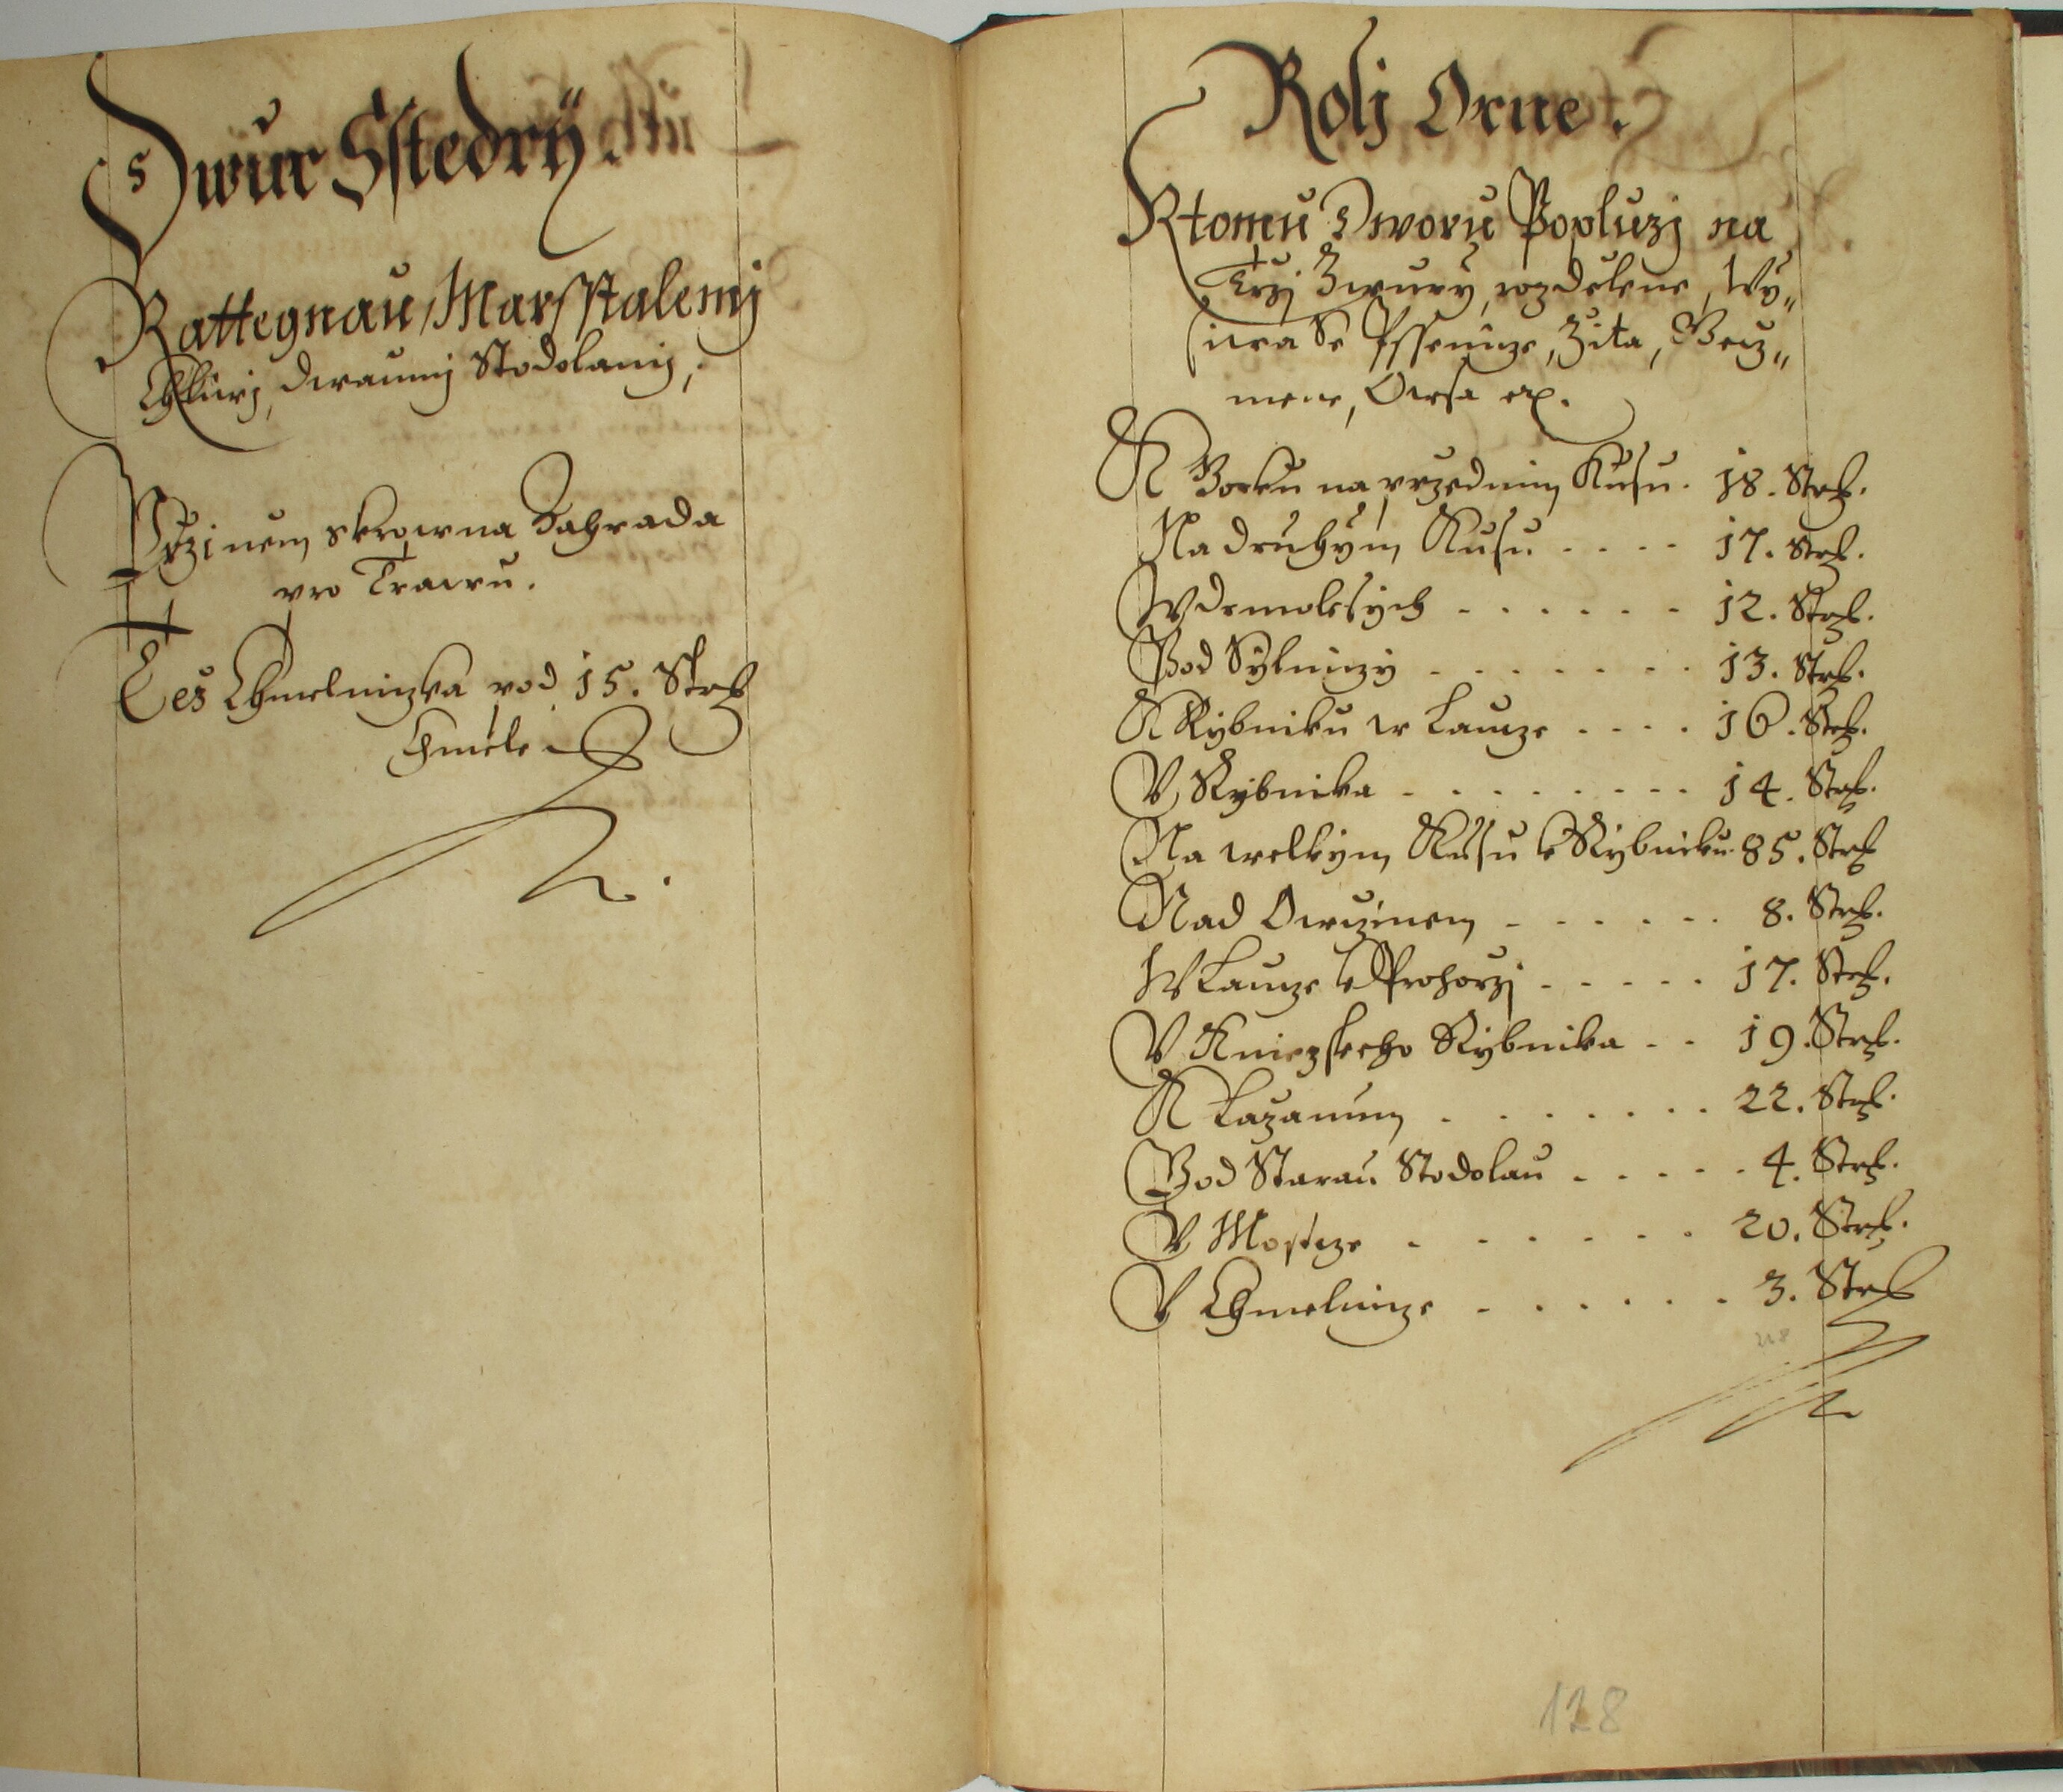 Dwur Sstedrÿ.
S Rattegnau, Marsstalemj
Chliwj, dwaumj Stodolamj,
Przi nem skrowna Zahrada
pro Trawu.
Tež Chmelniczka pod 15. Strych
Chmele
Rolj Orne.
K tomu Dworu Popluzj na
Trzj Zwury rozdelene, Wy„
siwa se Pssenicze, Žita, Gecz„
mene, Owsa etc.
K Borku na przednim Kusu. 18. Strych.
Na druhym Kusu . . . . 17. Strych.
W demolesych . . . . . . 12. Strych.
Pod Sylniczy . . . . . . . 13. Strych.
K Rybniku w Laucze . . . . 16. Strych.
V Rybnika . . . . . . . . . 14. Strych.
Na welkym Kusu k Rybniku 85. Strych
Nad Owczinem . . . . . . 8. Strych.
W Laucze k Prohorzj . . . . . 17. Strych.
V Kniezskeho Rybnika . . 19. Strych.
K Lazanum . . . . . . . 22. Strych.
Pod Starau Stodolau . . . . . 4. Strych.
V Mostcze . . . . . . 20. Strych.
V Chmelnicze . . . . . . 3. Strych
128